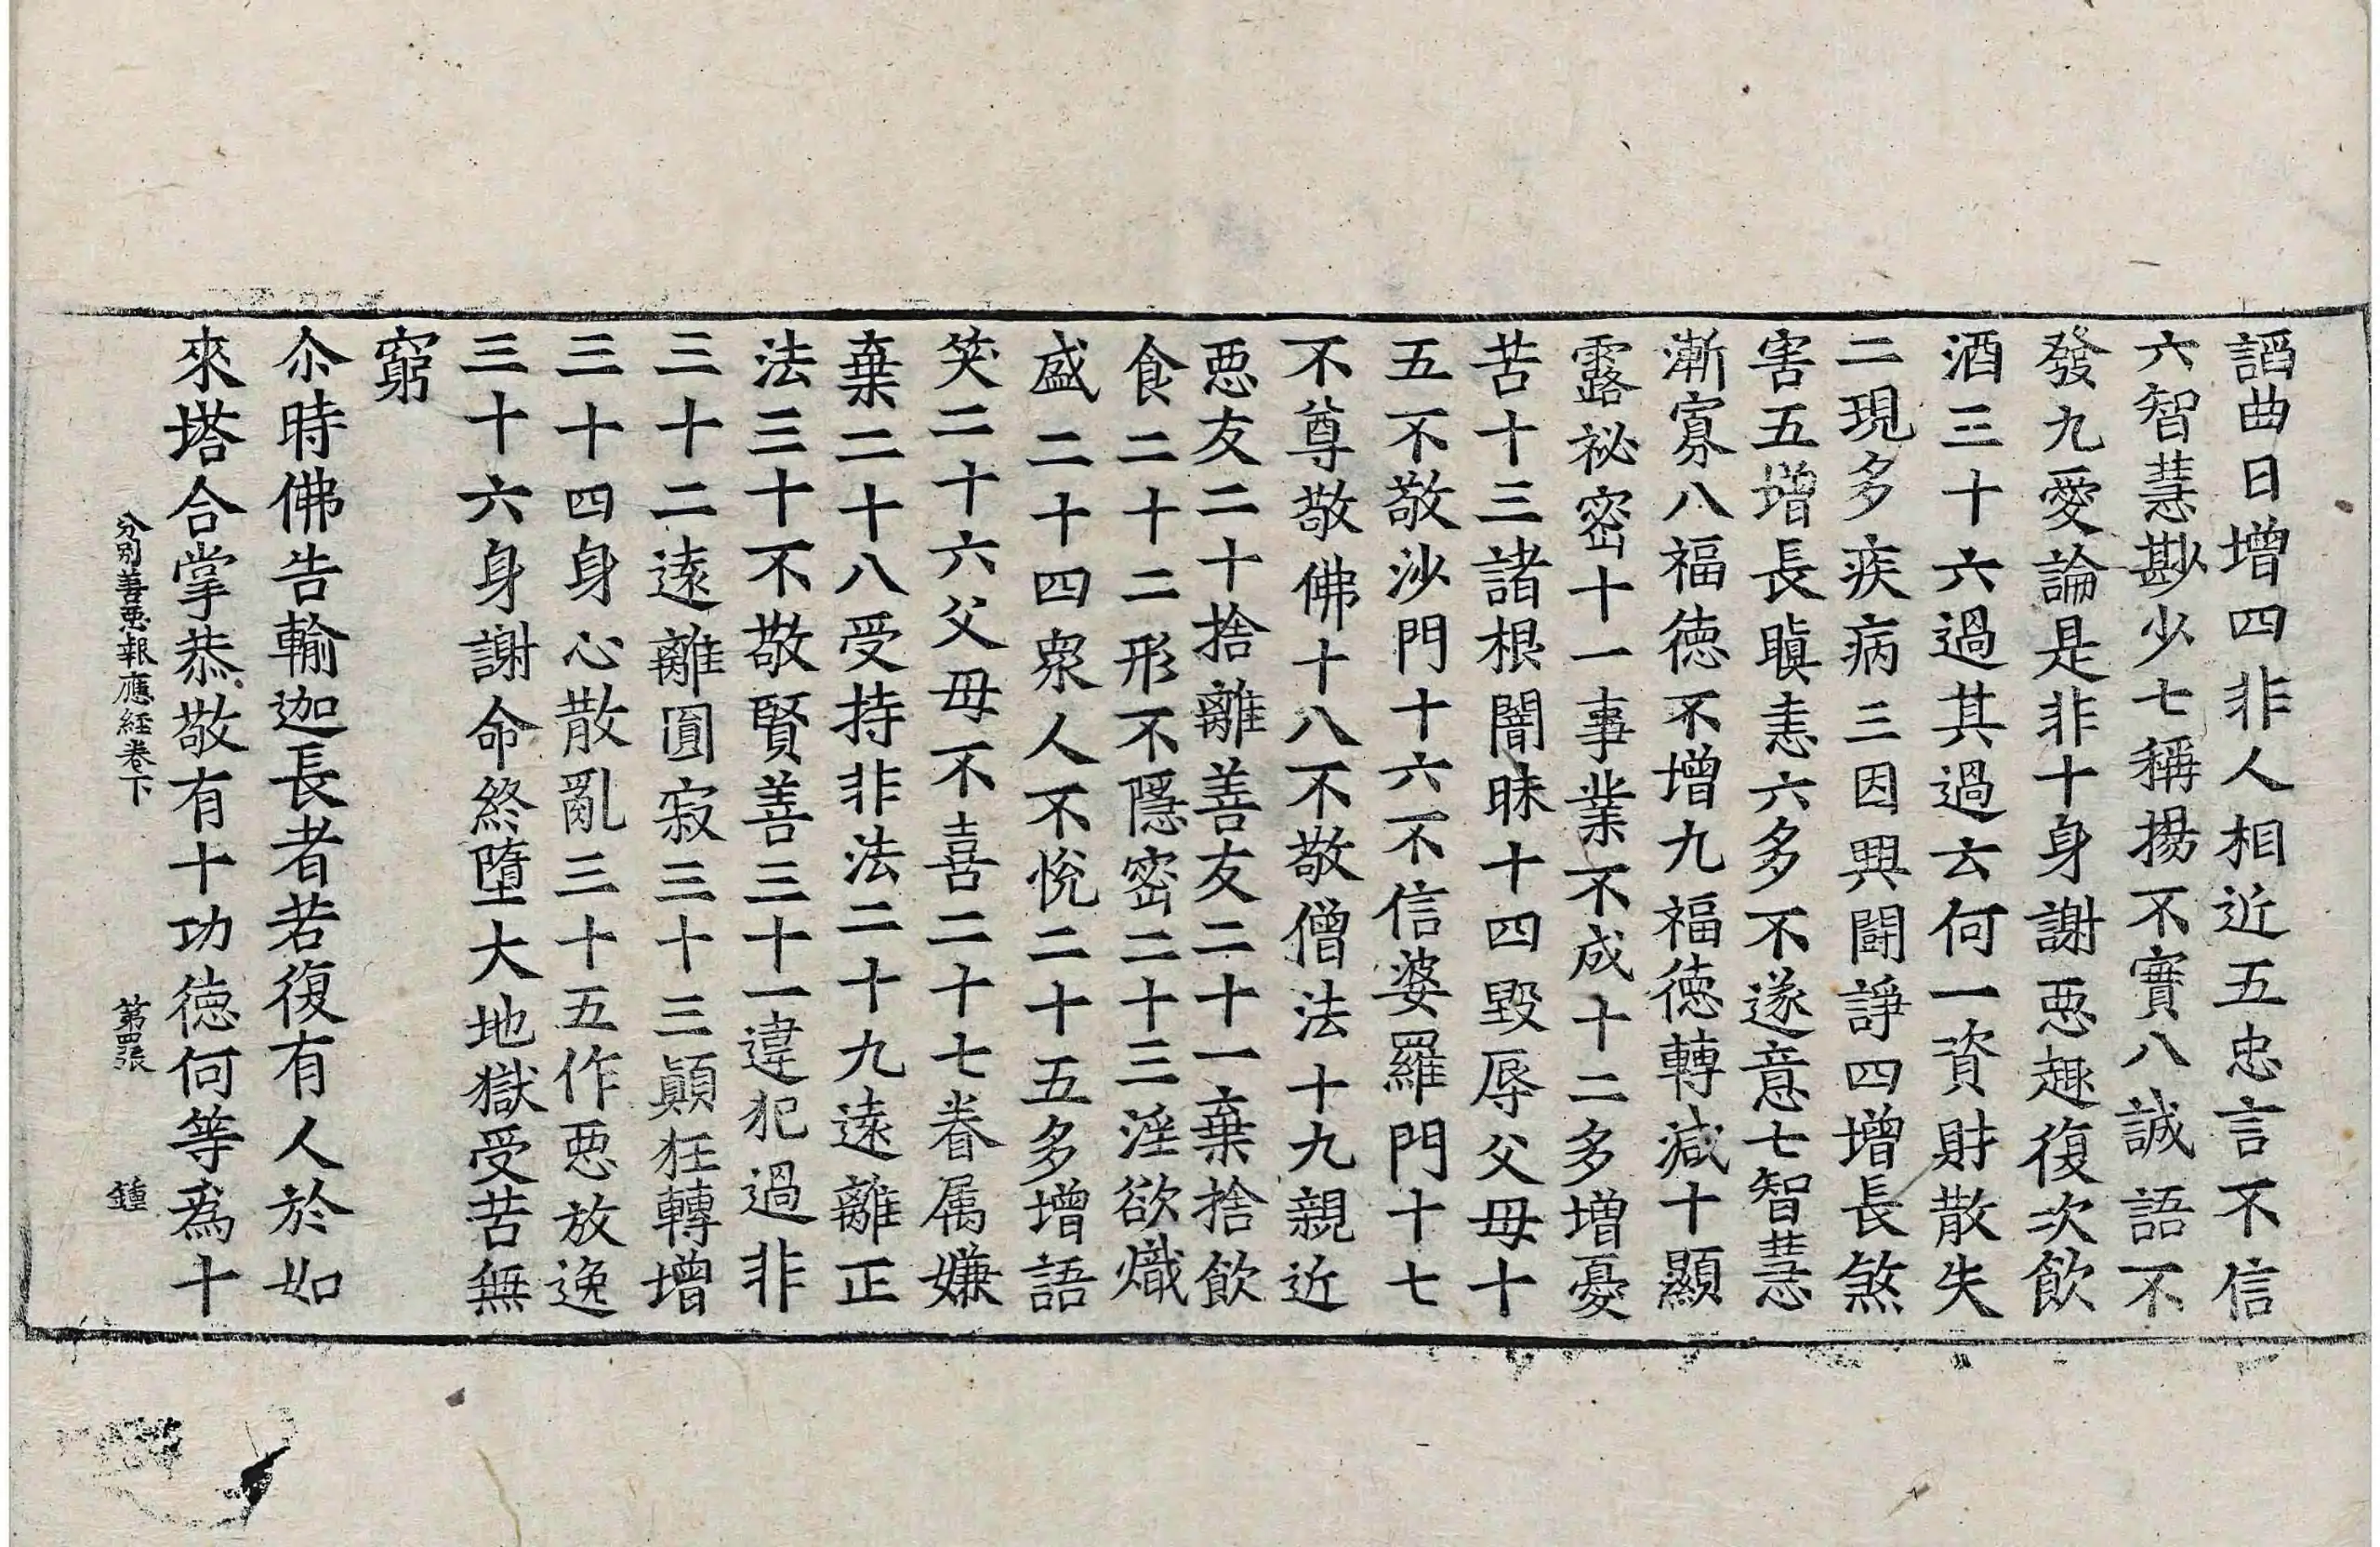 謟曲日增四非人相近五忠言不信
六智慧尠少七稱揚不實八誠語不
發九愛論是非十身謝惡趣復次飮
酒三十六過其過云何一資財散失
二現多疾病三因興鬪諍四增長煞
害五增長瞋恚六多不遂意七智慧
漸寡八福德不增九福德轉減十顯
露祕密十一事業不成十二多增憂
苦十三諸根闇昧十四毀辱父母十
五不敬沙門十六不信婆羅門十七
不尊敬佛十八不敬僧法十九親近
惡友二十捨離善友二十一棄捨飮
食二十二形不隱密二十三淫欲熾
盛二十四衆人不悅二十五多增語
笑二十六父母不喜二十七眷属嫌
棄二十八受持非法二十九遠離正
法三十不敬賢善三十一違犯過非
三十二遠離圓寂三十三顚狂轉增
三十四身心散亂三十五作惡放逸
三十六身謝命終墮大地獄受苦無
窮
尒時佛告輸迦長者若復有人於如
來塔合掌恭敬有十功德何等爲十
分別善惡報應経卷下 第四張 鍾